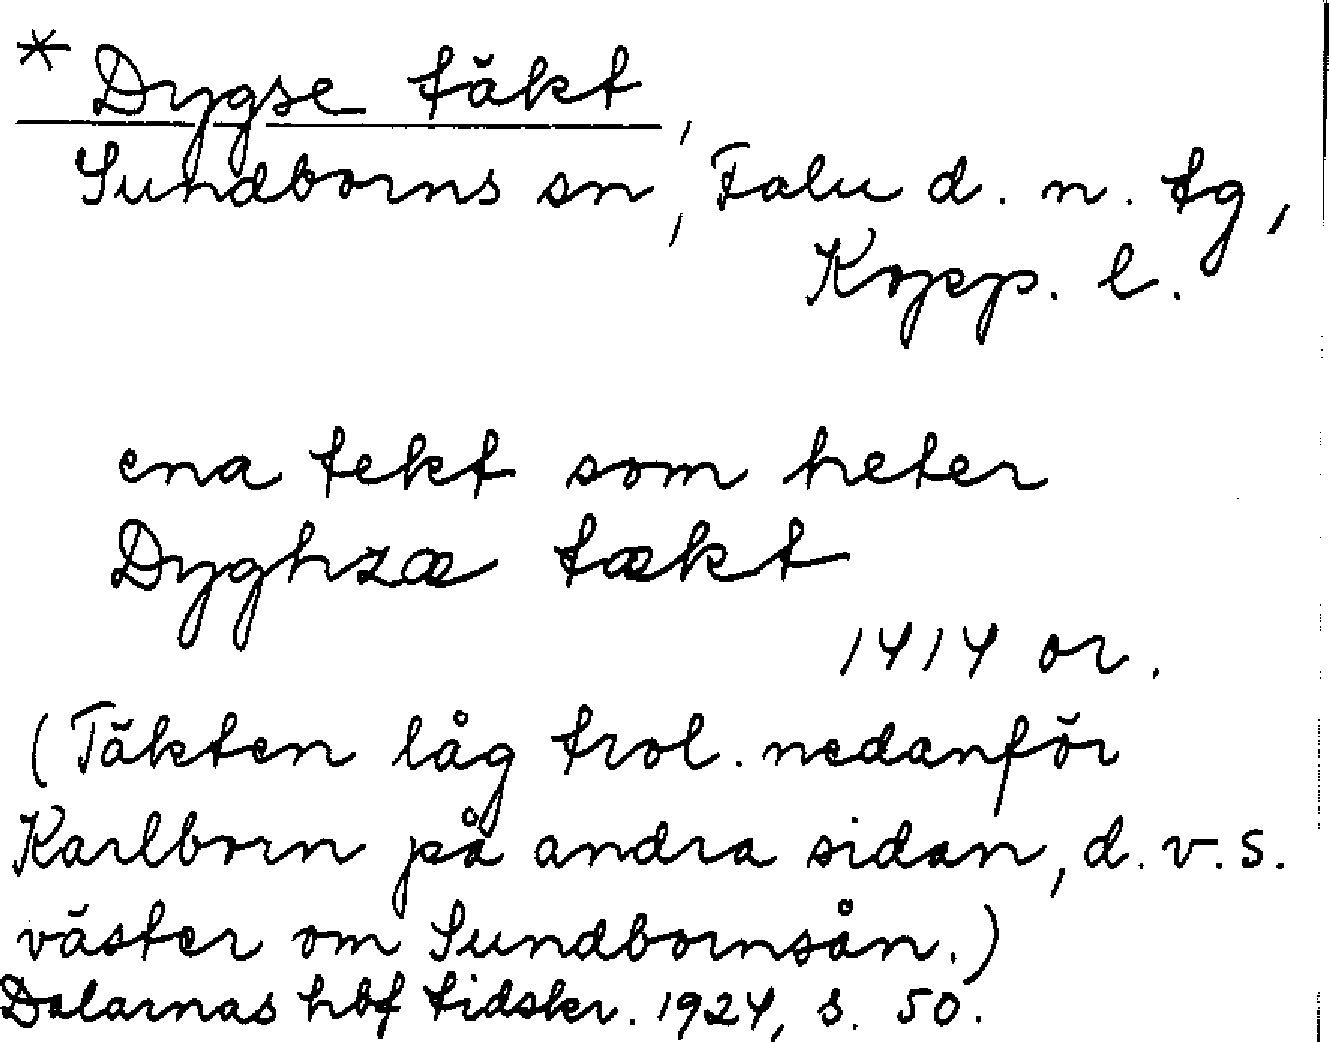 * Dygse täkt,
Sundborns sn, Falu d. n. tg,
Kopp. l.
ena tekt som heter
Dyghzæ tækt
1414 or.
(Täkten låg trol. nedanför
Karlborn på andra sidan, d.v.s.
väster om Sundbornsån.)
Dalarnas hbf tidskr. 1924, s. 50.